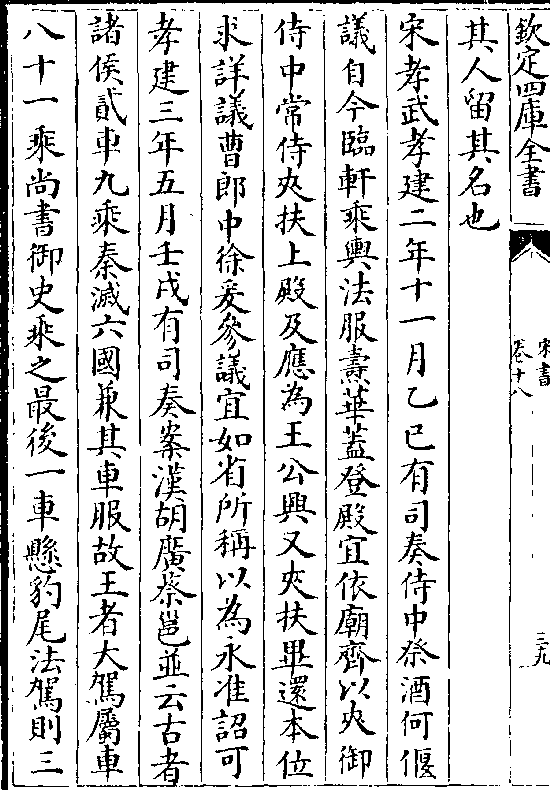 欽定四庫全書
宋書
卷十八
三九
其人留其名也
宋孝武孝建二年十一月乙巳有司奏侍中祭酒何偃
議自今臨軒乘輿法服燾華蓋登殿宜依廟齊以夾御
侍中常侍夾扶上殿及應為王公興又夾扶畢還本位
求詳議曹郎中徐爰參議宜如省所稱以為永准詔可
孝建三年五月壬戌有司奏案漢胡廣蔡邕並云古者
諸侯貳車九乘秦滅六國兼其車服故王者大駕屬車
八十一乘尚書御史乘之最後一車懸豹尾法駕則三